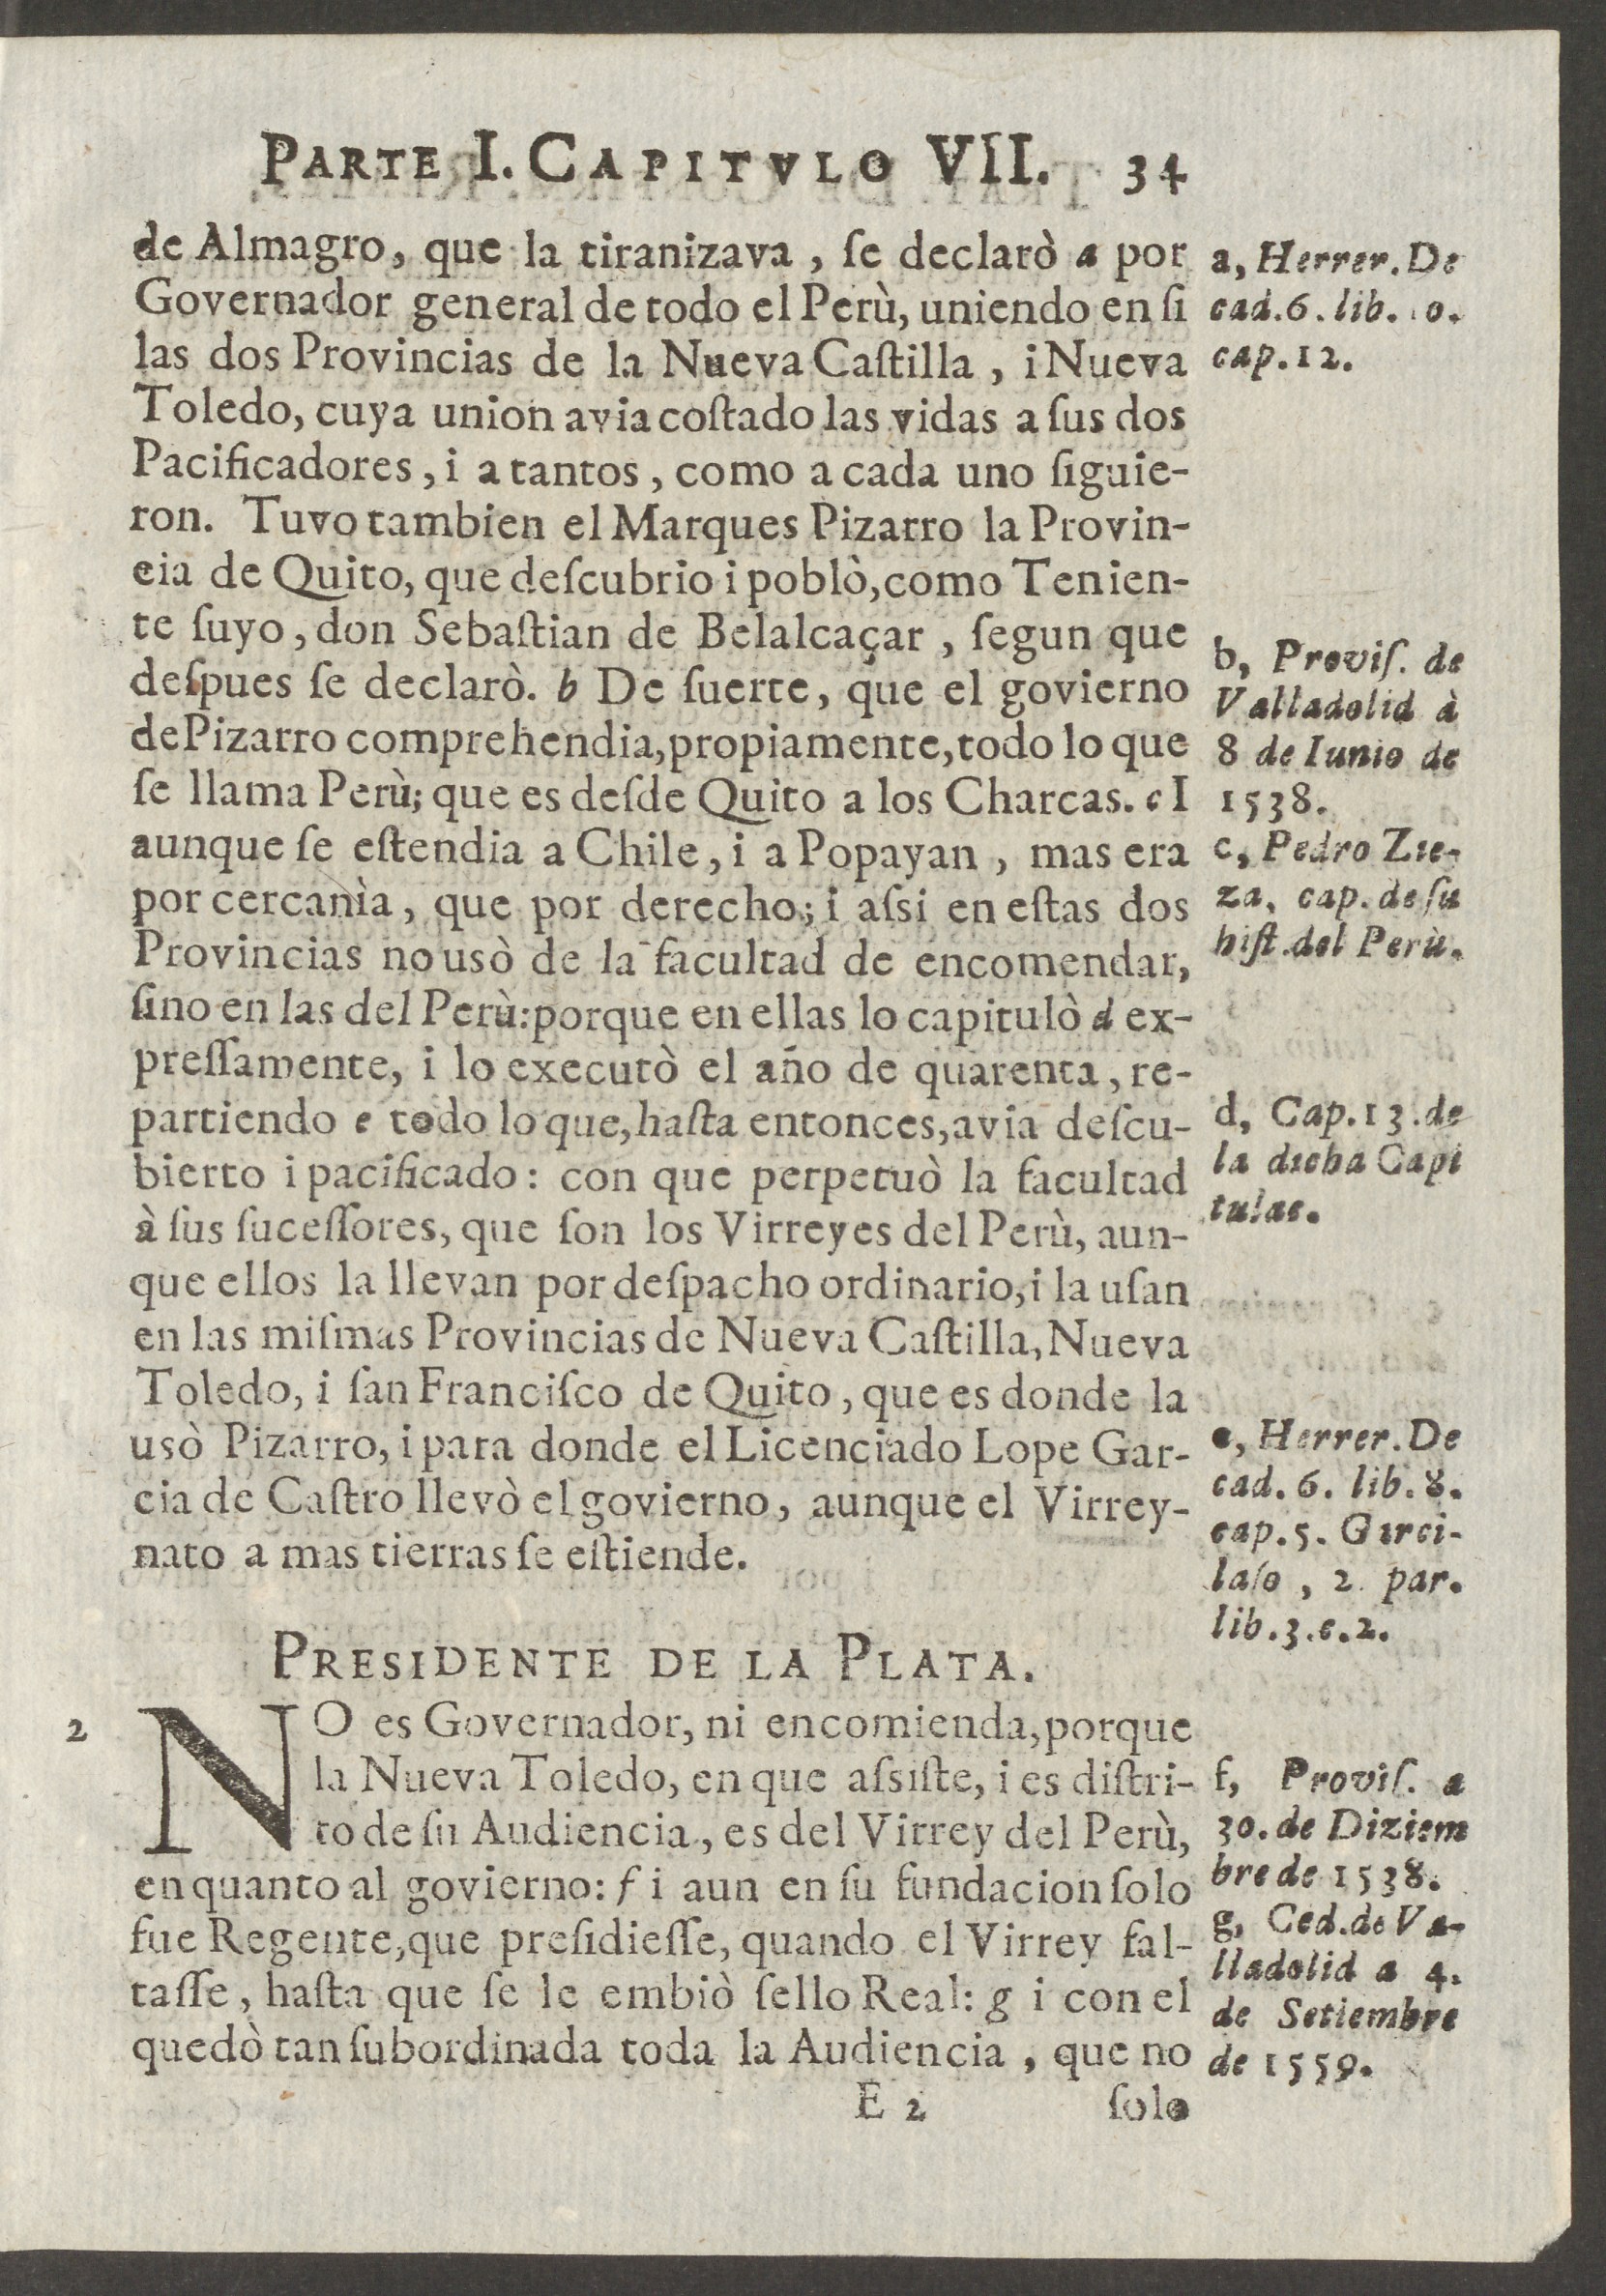 PARTE I. CAPITVLO VII. 34
de Almagro, que la tiranizava, ſe declarò a por
Governador general de todo el Perù, uniendo en ſi
las dos Provincias de la Nueva Caſtilla, i Nueva
Toledo, cuya union avia coſtado las vidas a ſus dos
Pacificadores, i a tantos, como a cada uno ſiguie-
ron. Tuvo tambien el Marques Pizarro la Provin-
cia de Quito, que deſcubrio i poblò, como Tenien-
te ſuyo, don Sebaſtian de Belalcaçar, ſegun que
deſpues ſe declarò. b De ſuerte, que el govierno
de Pizarro comprehendia, propiamente, todo lo que
ſe llama Perù; que es deſde Quito a los Charcas. c I
aunque ſe eſtendia a Chile, i a Popayan, mas era
por cercanìa, que por derecho; i aſsi en eſtas dos
Provincias no usò de la facultad de encomendar,
ſino en las del Perù: porque en ellas lo capitulò d ex-
preſſamente, i lo executò el año de quarenta, re-
partiendo e todo lo que, haſta entonces, avia deſcu-
bierto i pacificado: con que perpetuò la facultad
à ſus ſuceſſores, que ſon los Virreyes del Perù, aun-
que ellos la llevan por deſpacho ordinario, i la uſan
en las miſmas Provincias de Nueva Caſtilla, Nueva
Toledo, i ſan Franciſco de Quito, que es donde la
usò Pizarro, i para donde el Licenciado Lope Gar-
cia de Caſtro llevò el govierno, aunque el Virrey-
nato a mas tierras ſe eſtiende.
PRESIDENTE DE LA PLATA.
2
NO es Governador, ni encomienda, porque
la Nueva Toledo, en que aſsiſte, i es diſtri-
to de ſu Audiencia, es del Virrey del Perù,
en quanto al govierno: f i aun en ſu fundacion ſolo
fue Regente, que preſidieſſe, quando el Virrey fal-
taſſe, haſta que ſe le embiò ſello Real: g i con el
quedò tan ſubordinada toda la Audiencia, que no
E 2 ſolo
a, Herrer. De
cad. 6. lib. 0.
cap. 12.
b, Proviſ. de
Valladolid à
8 de Iunio de
1538.
c, Pedro Zie-
za, cap. de ſu
hiſt. del Perù.
d, Cap. 13. de
la dicha Capi
tulac.
e, Herrer. De
cad. 6. lib. 8.
cap. 5. Garci-
laſo, 2. par.
lib. 3. c. 2.
f, Proviſ. a
30. de Diziem
bre de 1538.
g, Ced. de Va-
lladolid a 4.
de Setiembre
de 1559.